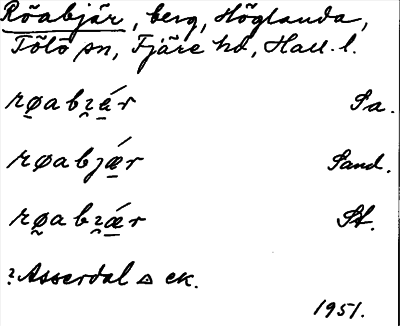 Röabjär, berg, Höglanda,
Tölö sn, Fjäre hd, Hall. l.
rø̠abɂǽ̠r Sa.
røabjǽ̠r Sand.
rø̰abɂǽ̠r St.
Asserdal △ ek.
1951.